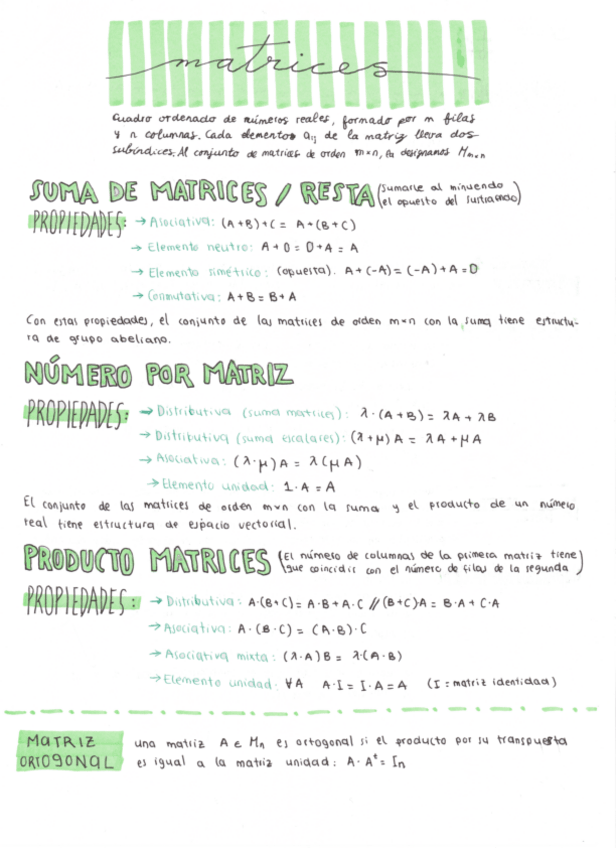 matrices
Cuadro ordenado de números reales, formado por m filas
y n columnas. Cada elementos aᵢⱼ de la matriz lleva dos
subíndices. Al conjunto de matrices de orden m×n, la designamos Mₘₓₙ
SUMA DE MATRICES / RESTA (sumarle al minuendo
el opuesto del sustraendo)
PROPIEDADES: → Asociativa: (A+B)+C = A+(B+C)
→ Elemento neutro: A+0 = 0+A = A
→ Elemento simétrico: (opuesta). A+(-A) = (-A)+A = 0
→ Conmutativa: A+B = B+A
Con estas propiedades, el conjunto de las matrices de orden m×n con la suma tiene estructu-
ra de grupo abeliano.
NÚMERO POR MATRIZ
PROPIEDADES: → Distributiva (suma matrices): λ·(A+B) = λA + λB
→ Distributiva (suma escalares): (λ+μ)A = λA + μA
→ Asociativa: (λ·μ)A = λ(μA)
→ Elemento unidad: 1·A = A
El conjunto de las matrices de orden m×n con la suma y el producto de un número
real tiene estructura de espacio vectorial.
PRODUCTO MATRICES (El número de columnas de la primera matriz tiene
que coincidir con el número de filas de la segunda)
PROPIEDADES: → Distributiva: A·(B+C) = A·B + A·C // (B+C)A = B·A + C·A
→ Asociativa: A·(B·C) = (A·B)·C
→ Asociativa mixta: (λ·A)B = λ·(A·B)
→ Elemento unidad. ∀A A·I = I·A = A (I = matriz identidad)
MATRIZ ORTOGONAL
una matriz A ∈ Mₙ es ortogonal si el producto por su transpuesta
es igual a la matriz unidad: A·Aᵗ = Iₙ